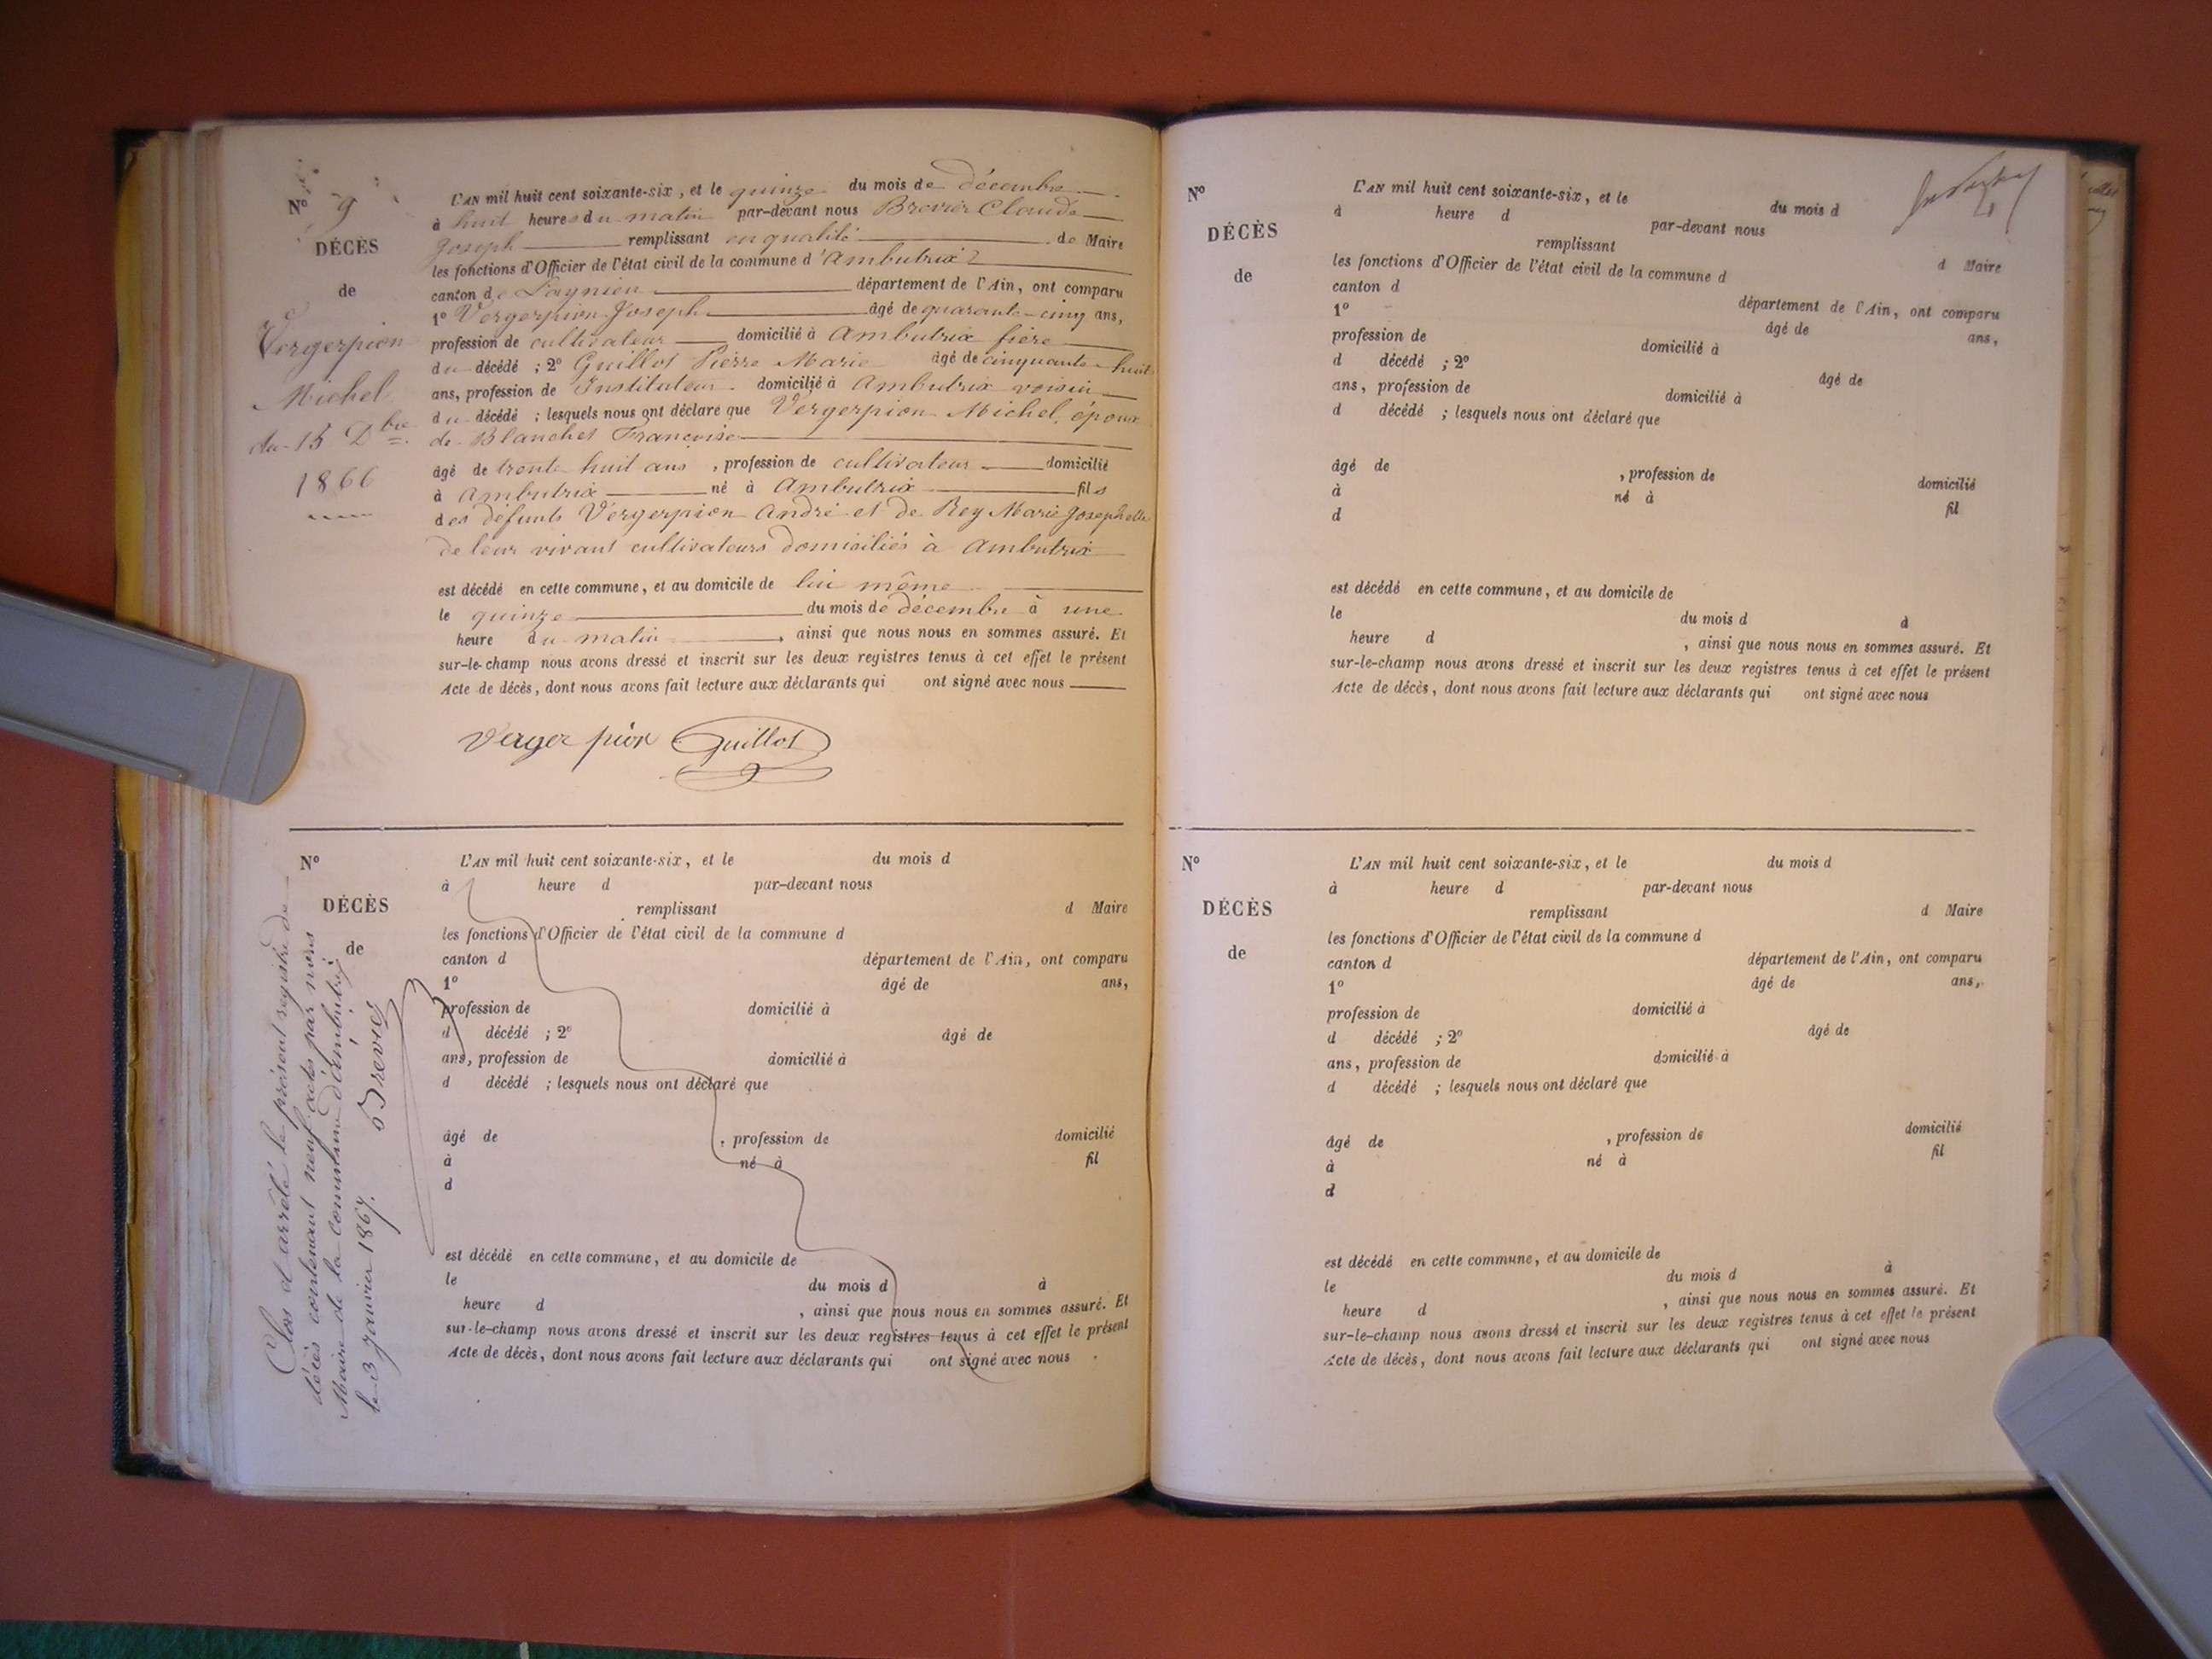 Nº 9
DÉCÈS
de
Vergerpion
Michel
du 15 Dbre
1866
L'AN mil huit cent soixante-six, et le quinze du mois de décembre
à huit heures du matin par-devant nous Brevier Claude
Joseph remplissant en qualité de Maire
les fonctions d'Officier de l'état civil de la commune d'Ambutrix
canton de Lagnieu département de l'Ain, ont comparu
1º Vergerpion Joseph âgé de quarante-cinq ans,
profession de cultivateur domicilié à Ambutrix frère
du décédé ; 2º Guillot Pierre Marie âgé de cinquante-huit
ans, profession de Instituteur domicilié à Ambutrix voisin
du décédé ; lesquels nous ont déclaré que Vergerpion Michel, époux
de Blanchet Françoise
âgé de trente huit ans , profession de cultivateur domicilié
à Ambutrix né à Ambutrix fils
des défunts Vergerpion André et de Rey Marie Josephette
de leur vivant cultivateurs domiciliés à Ambutrix
est décédé en cette commune, et au domicile de lui même
le quinze du mois de décembre à une
heure du matin , ainsi que nous nous en sommes assuré. Et
sur-le-champ nous avons dressé et inscrit sur les deux registres tenus à cet effet le présent
Acte de décès, dont nous avons fait lecture aux déclarants qui ont signé avec nous
Verger pion Guillot
Nº
DÉCÈS
de
L'AN mil huit cent soixante-six, et le du mois d
à heure d par-devant nous
remplissant d Maire
les fonctions d'Officier de l'état civil de la commune d
canton d département de l'Ain, ont comparu
1º âgé de ans,
profession de domicilié à
d décédé ; 2º âgé de
ans, profession de domicilié à
d décédé ; lesquels nous ont déclaré que
âgé de , profession de domicilié
à né à fil
d
est décédé en cette commune, et au domicile de
le du mois d à
heure d , ainsi que nous nous en sommes assuré. Et
sur-le-champ nous avons dressé et inscrit sur les deux registres tenus à cet effet le présent
Acte de décès, dont nous avons fait lecture aux déclarants qui ont signé avec nous
Clos et arrêté le présent registre de
décès contenant neuf actes par nous
Maire de la commune d'Ambutrix
le 3 janvier 1867.
Brevier
Nº
DÉCÈS
de
L'AN mil huit cent soixante-six, et le du mois d
à heure d par-devant nous
remplissant d Maire
les fonctions d'Officier de l'état civil de la commune d
canton d département de l'Ain, ont comparu
1º âgé de ans,
profession de domicilié à
d décédé ; 2º âgé de
ans, profession de domicilié à
d décédé ; lesquels nous ont déclaré que
âgé de , profession de domicilié
à né à fil
d
est décédé en cette commune, et au domicile de
le du mois d à
heure d , ainsi que nous nous en sommes assuré. Et
sur-le-champ nous avons dressé et inscrit sur les deux registres tenus à cet effet le présent
Acte de décès, dont nous avons fait lecture aux déclarants qui ont signé avec nous
Nº
DÉCÈS
de
L'AN mil huit cent soixante-six, et le du mois d
à heure d par-devant nous
remplissant d Maire
les fonctions d'Officier de l'état civil de la commune d
canton d département de l'Ain, ont comparu
1º âgé de ans,
profession de domicilié à
d décédé ; 2º âgé de
ans, profession de domicilié à
d décédé ; lesquels nous ont déclaré que
âgé de , profession de domicilié
à né à fil
d
est décédé en cette commune, et au domicile de
le du mois d à
heure d , ainsi que nous nous en sommes assuré. Et
sur-le-champ nous avons dressé et inscrit sur les deux registres tenus à cet effet le présent
Acte de décès, dont nous avons fait lecture aux déclarants qui ont signé avec nous